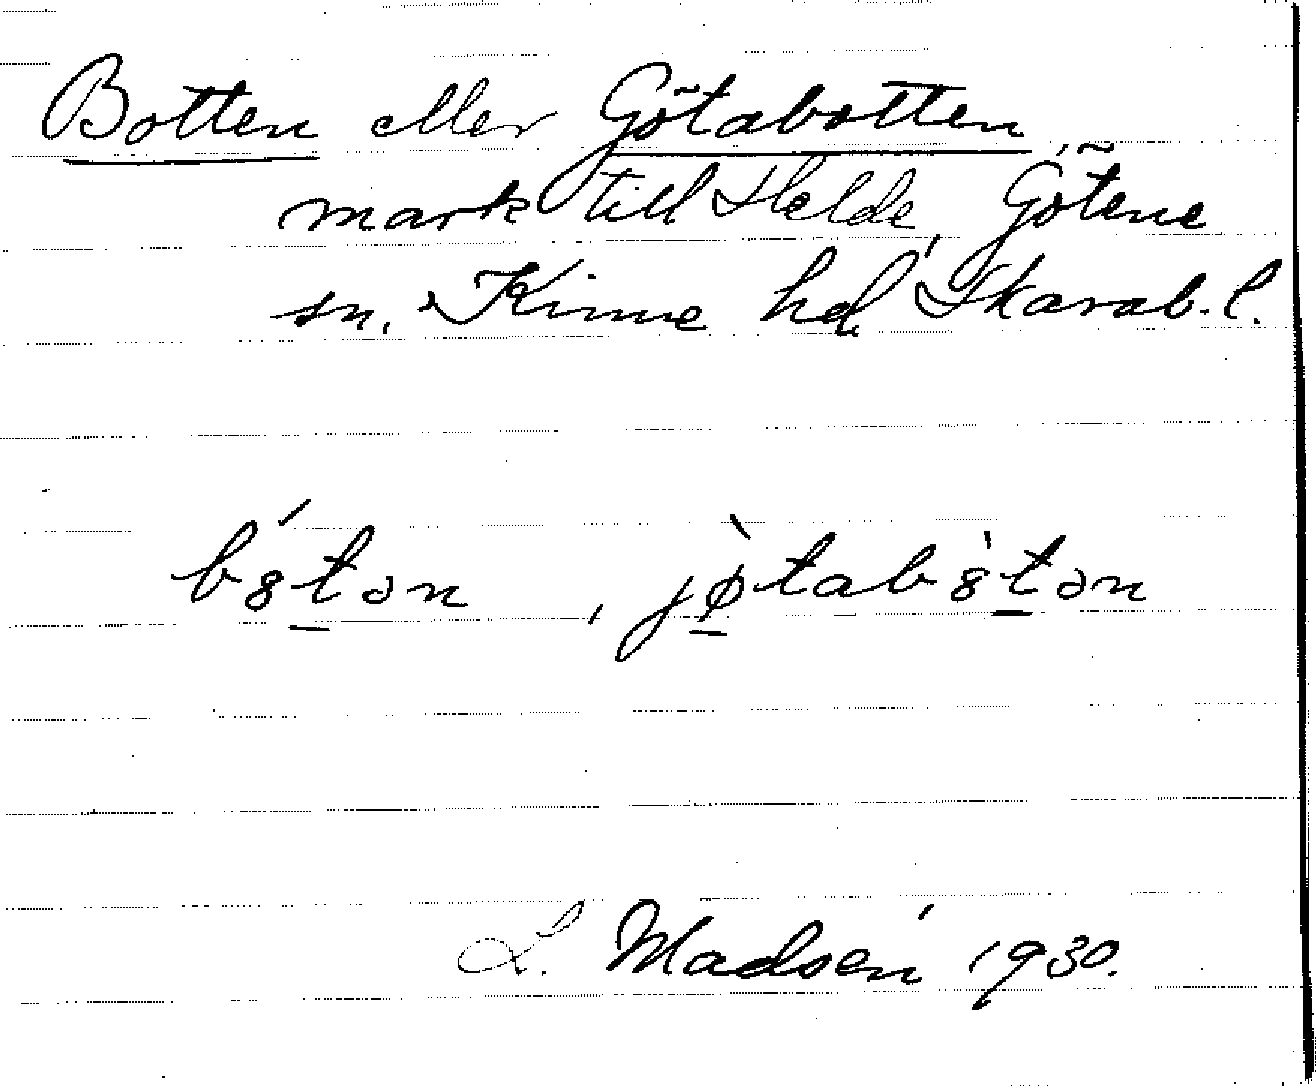 Botten eller Götabotten
mark till Helde, Götene
sn. Kinne hd, Skarab. l.
b8́tən, jø̀tab8̀tən
L. Madsén 1930.